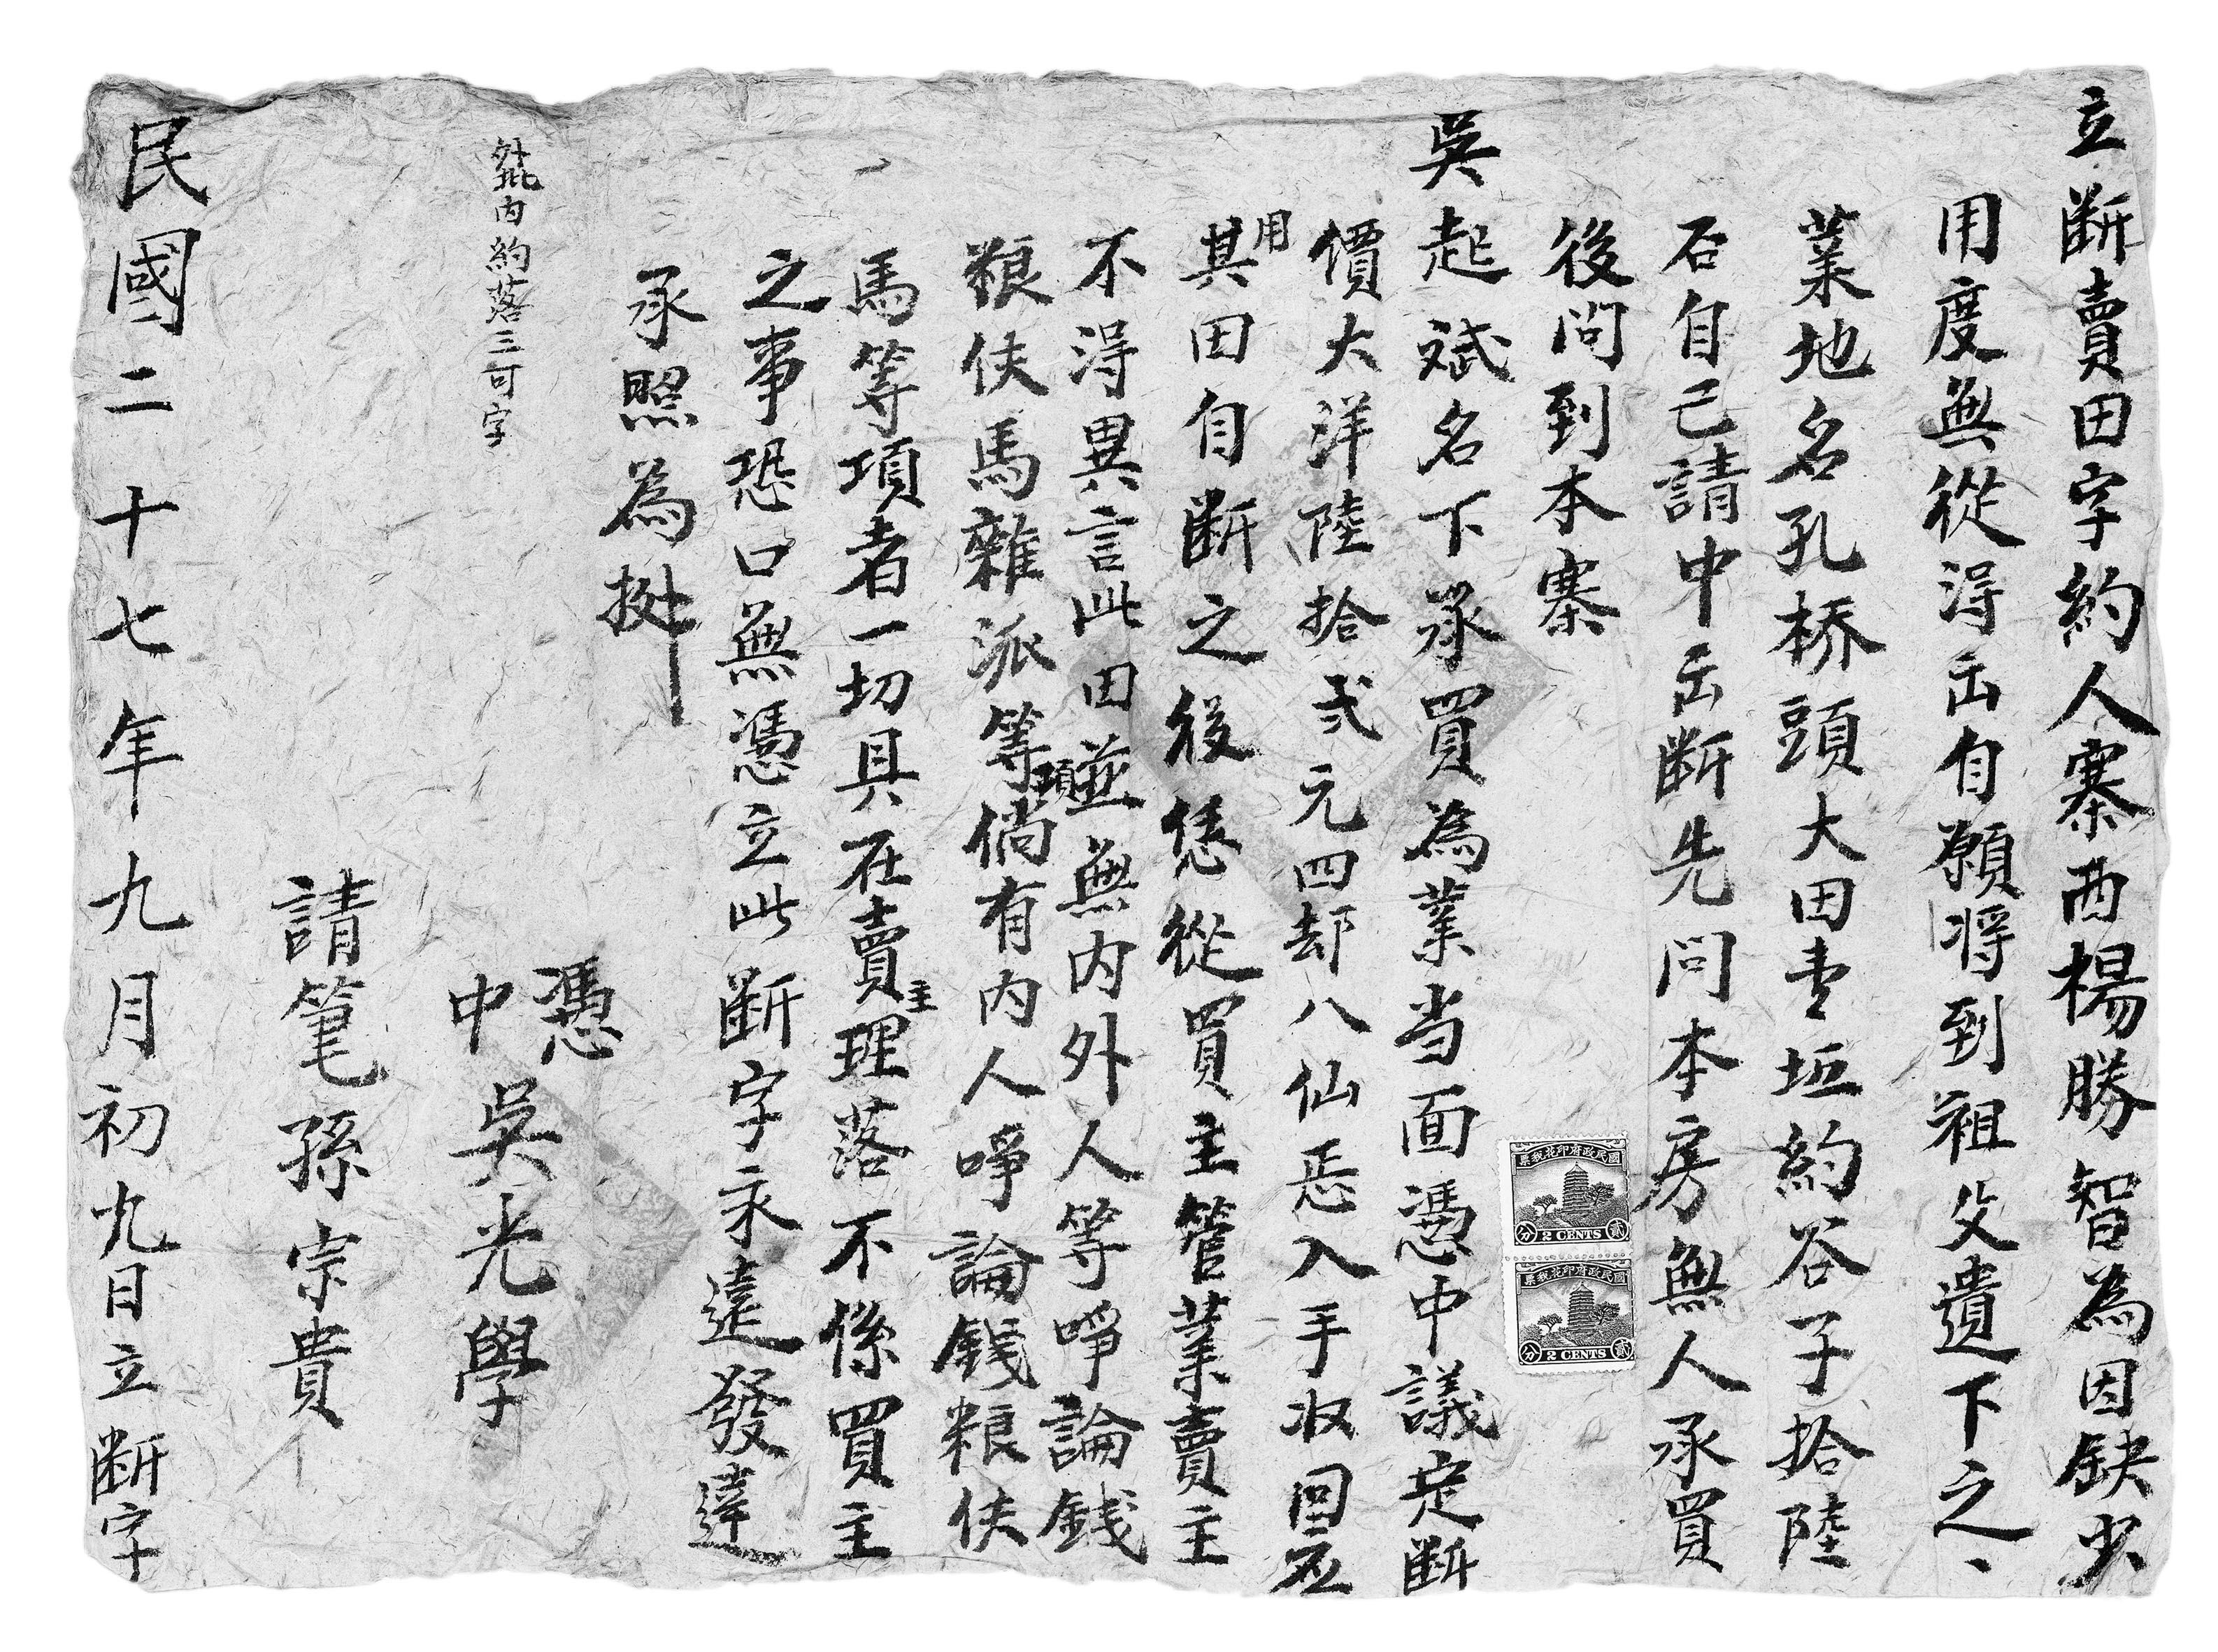 立断賣田字約人寨西楊勝智為因缺少
用度無從淂出自願将到祖父遺下之、
業地名孔桥頭大田壹坵約谷子拾陸
石自己請中出断先問本房無人承買
後問到本寨
吳起斌名下承買為業当面憑中議定断
價大洋陸拾弍元四却八仙悉入手收回应
用
其田自断之後恁從買主管業賣主
不淂異言此田並無内外人等啼論錢
粮伕馬雜派等項倘有内人啼論錢粮伕
馬等項者一切具在賣主理落不係買主
之事恐口無憑立此断字永遠發達
承照為挶
外批内約落三可字
憑
中 吳光學
請筆孫宗貴
民國二十七年九月初九日立断字
國民政府印花稅票
分 2 CENTS 貳
國民政府印花稅票
分 2 CENTS 貳